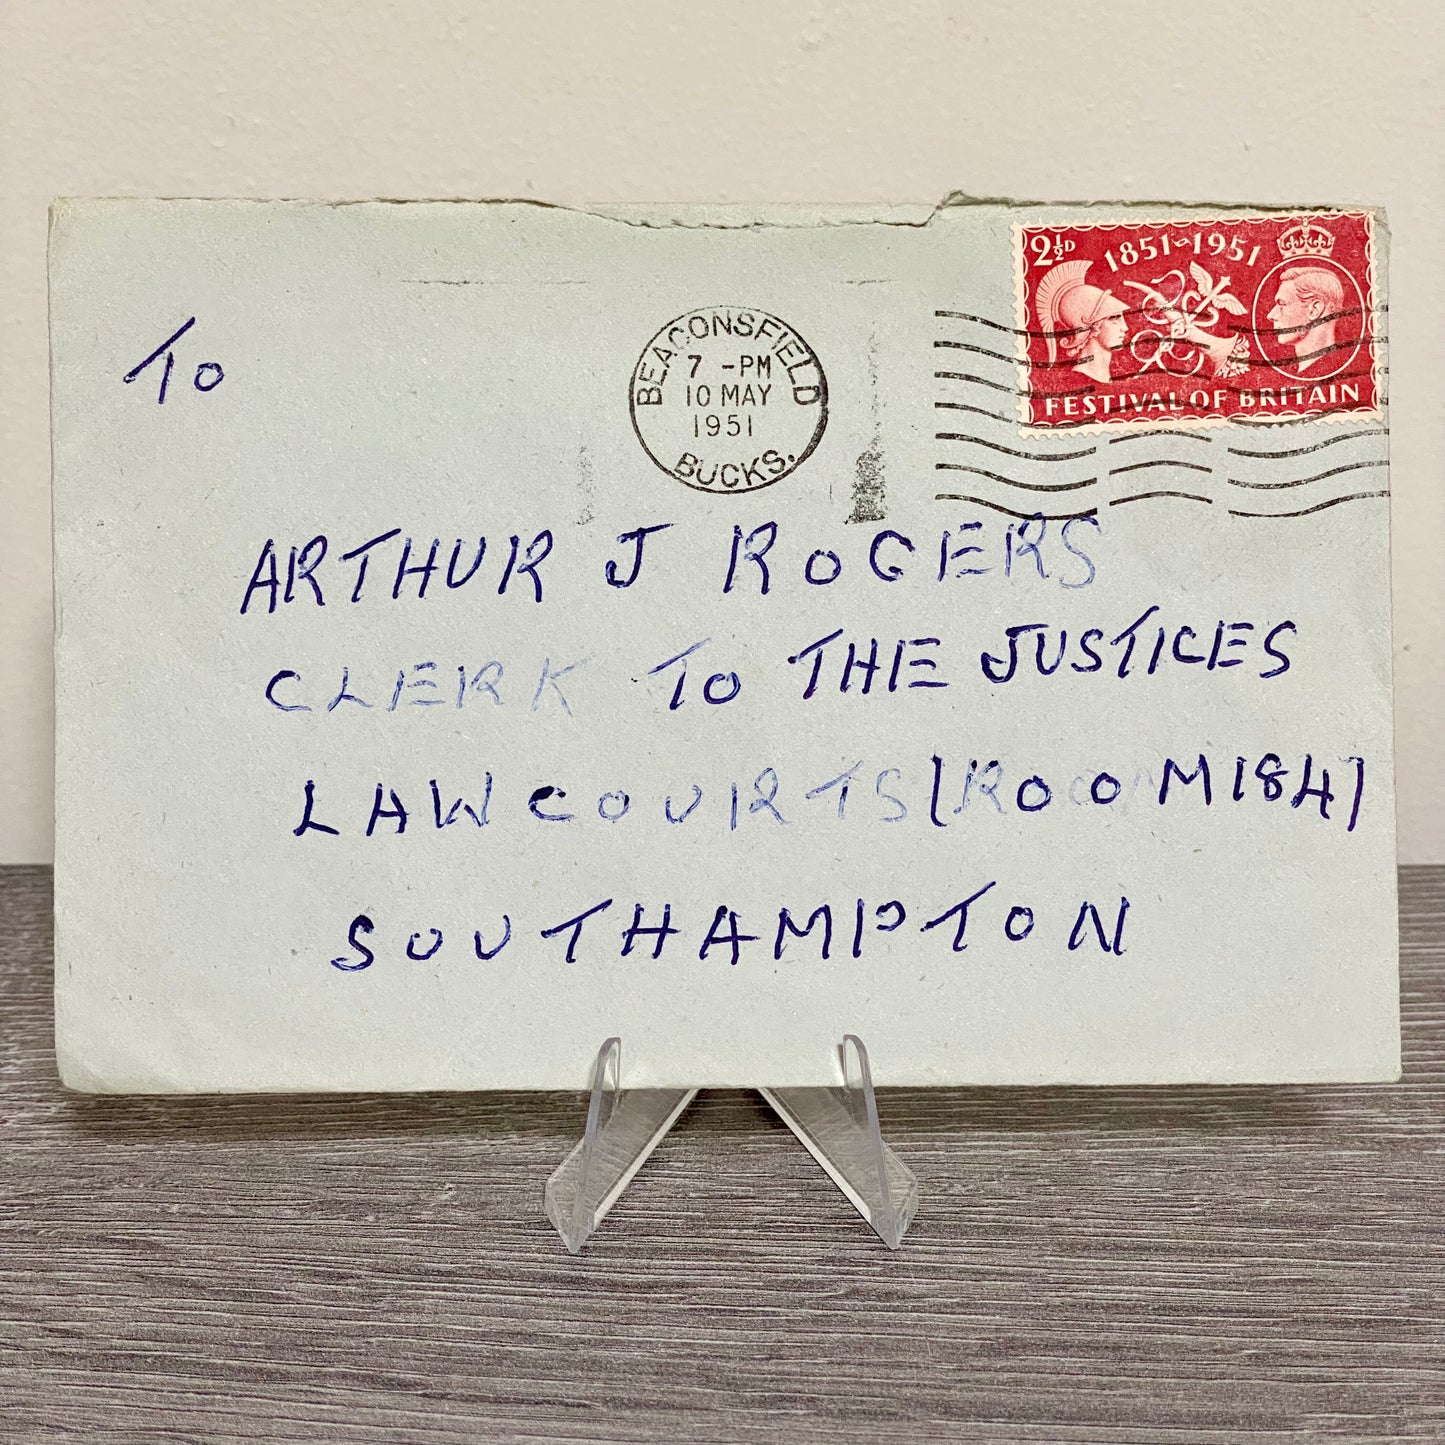 2½D 1851-1951
FESTIVAL OF BRITAIN
BEACONSFIELD
7 -PM
10 MAY
1951
BUCKS.
TO
ARTHUR J ROGERS
CLERK TO THE JUSTICES
LAW COURTS (ROOM 184)
SOUTHAMPTON